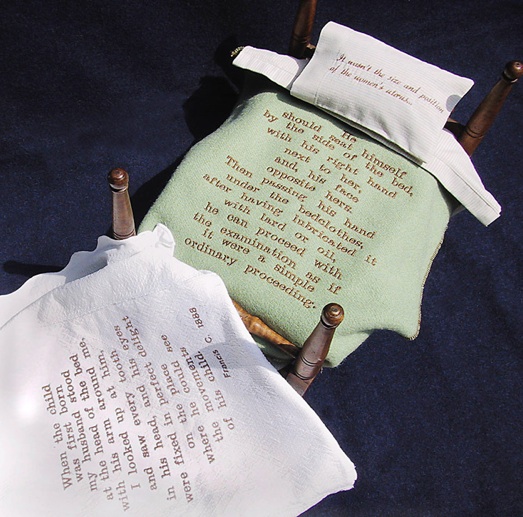 It wasn't the size and position
of the women's uterus...
He
should seat himself
by the side of the bed,
with his right hand
next to her,
and, his face
opposite hers.
Then passing his hand
under the bedclothes,
after having lubricated it
with lard or oil,
he can proceed with
the examination as if
it were a simple
ordinary proceeding.
When the child
was first born
my husband stood
at the head of the bed
with his arm around me.
I looked up at him,
and saw every tooth
in his head, and his eyes
were fixed in perfect delight
on the place
where he could see
the movements
of his child.
Francis C. 1888